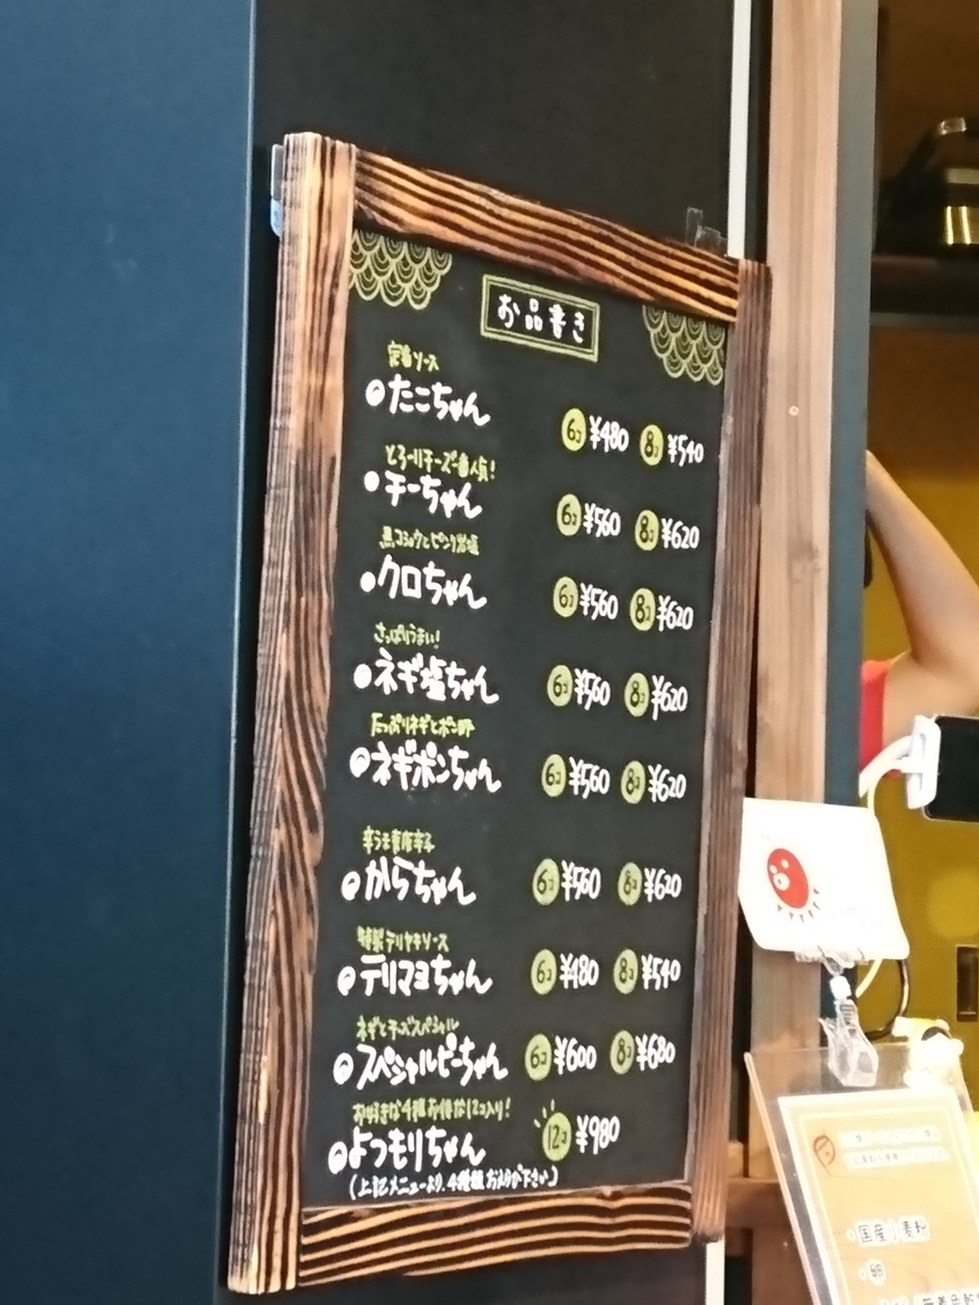 お品書き
定番ソース
たこちゃん 6コ ¥480 8コ ¥540
とろーりチーズ一番人気!
チーちゃん 6コ ¥560 8コ ¥620
黒コショウとピンク岩塩
クロちゃん 6コ ¥560 8コ ¥620
さっぱりうまい!
ネギ塩ちゃん 6コ ¥560 8コ ¥620
たっぷりネギとポン酢
ネギポンちゃん 6コ ¥560 8コ ¥620
からちゃん 6コ ¥560 8コ ¥620
特製テリヤキソース
テリマヨちゃん 6コ ¥480 8コ ¥540
ネギとチーズスペシャル
スペシャルピーちゃん 6コ ¥600 8コ ¥680
お好きな4種お得な12コ入り!
よつもりちゃん 12コ ¥980
(上記メニューより、4種類お選び下さい)
・国産小麦粉
・卵